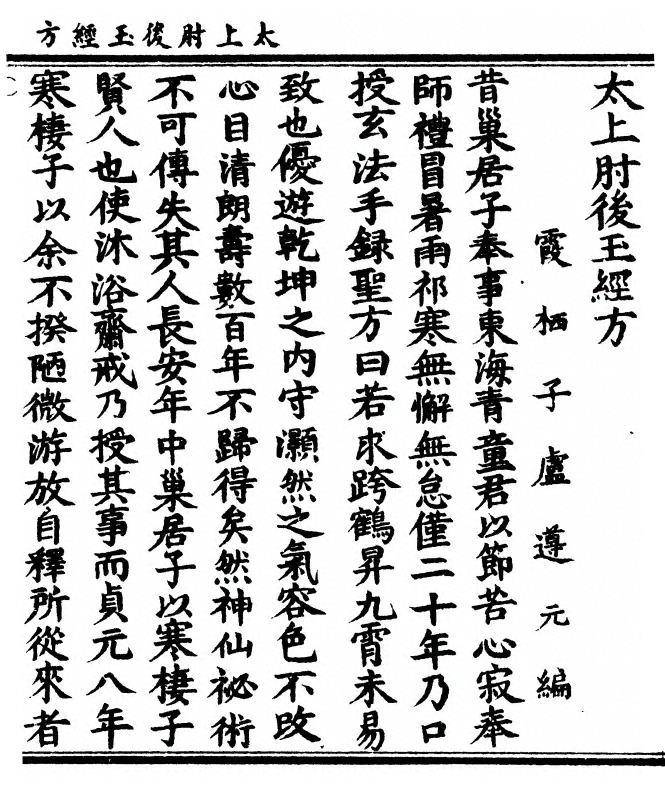 太上肘後玉經方
太上肘後玉經方
霞栖子盧遵元編
昔巢居子奉事東海青童君以節苦心寂奉
師禮冒暑雨祁寒無懈無怠僅二十年乃口
授玄法手録聖方曰若求跨鶴昇九霄未易
致也優遊乾坤之內守灝然之氣容色不改
心目清朗壽數百年不歸得矣然神仙祕術
不可傳失其人長安年中巢居子以寒棲子
賢人也使沐浴齋戒乃授其事而貞元八年
寒棲子以余不揆陋微游放自釋所從來者